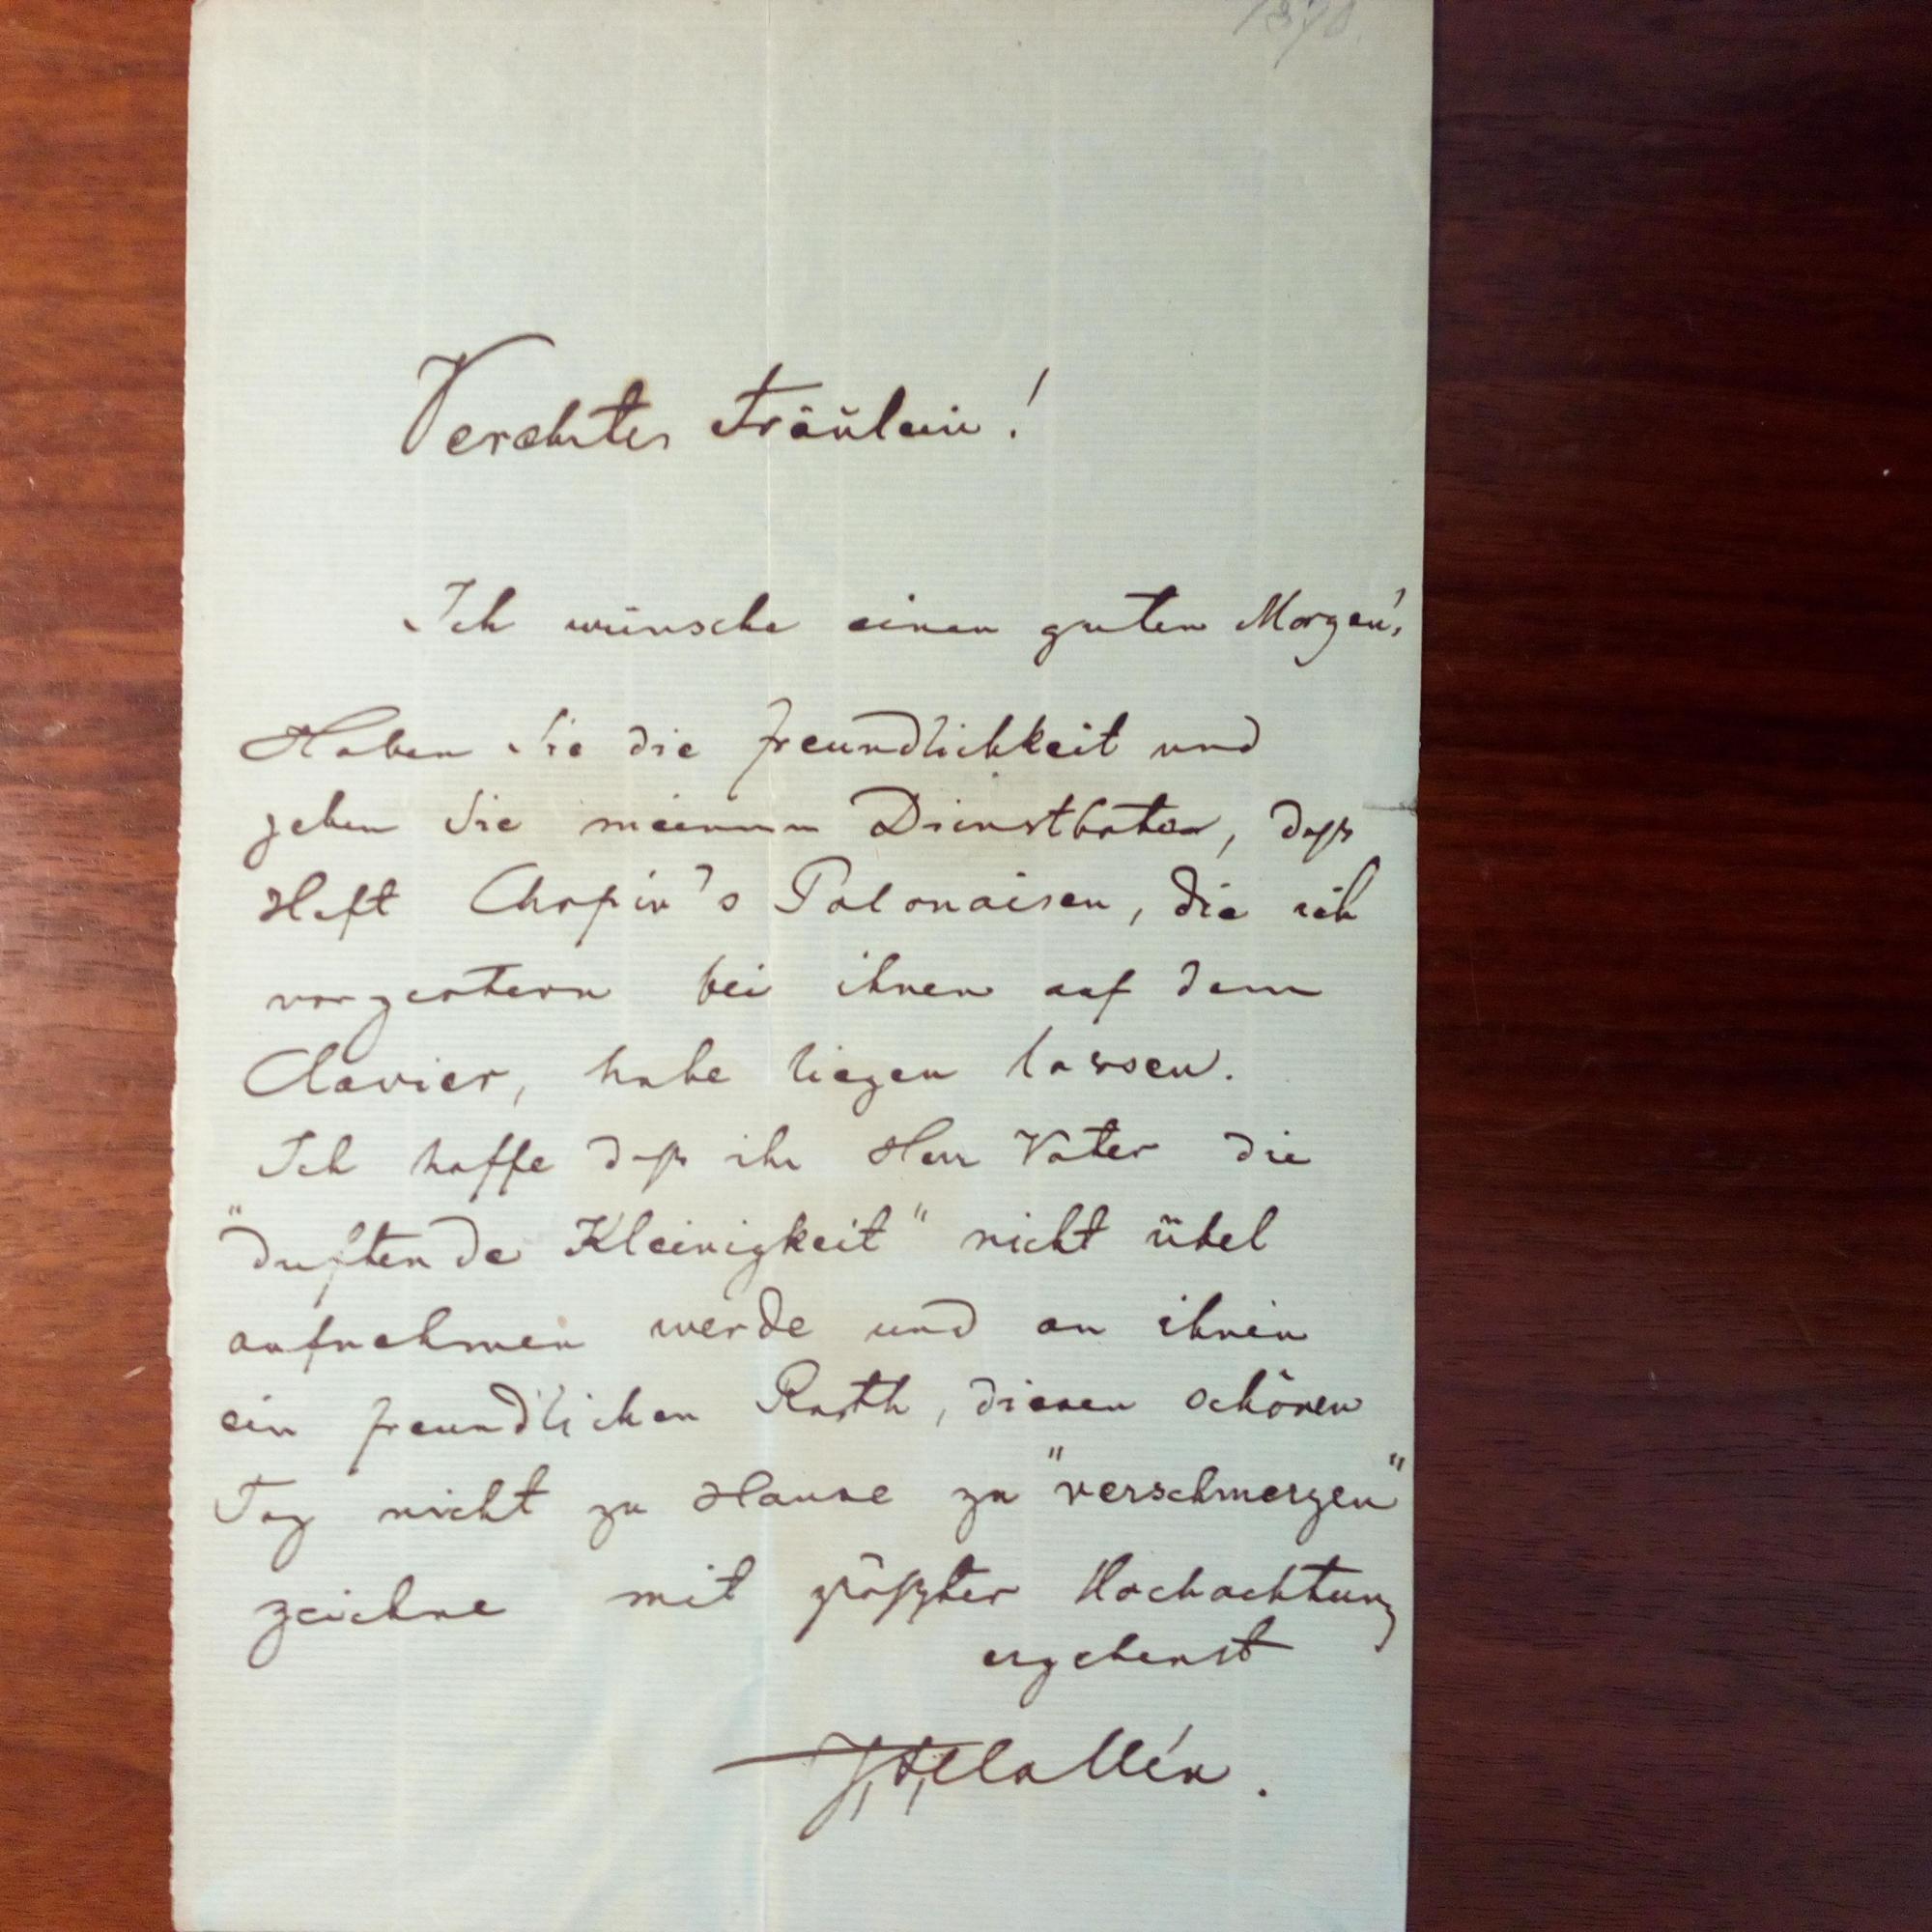 1870.
Verehrtes Fräulein!
Ich wünsche einen guten Morgen!
Haben Sie die freundlichkeit und
geben Sie meinem Dienstboten, daß
Heft Chopin's Polonaisen, die ich
vorgestern bei ihnen auf dem
Clavier, habe liegen lassen.
Ich hoffe daß ihr Herr Vater die
"duftende Kleinigkeit" nicht übel
aufnehmen werde und an ihnen
ein freundlichen Rath, diesen schönen
Tag nicht zu Hause zu "verschmerzen"
zeichne mit größter Hochachtung
ergebenst